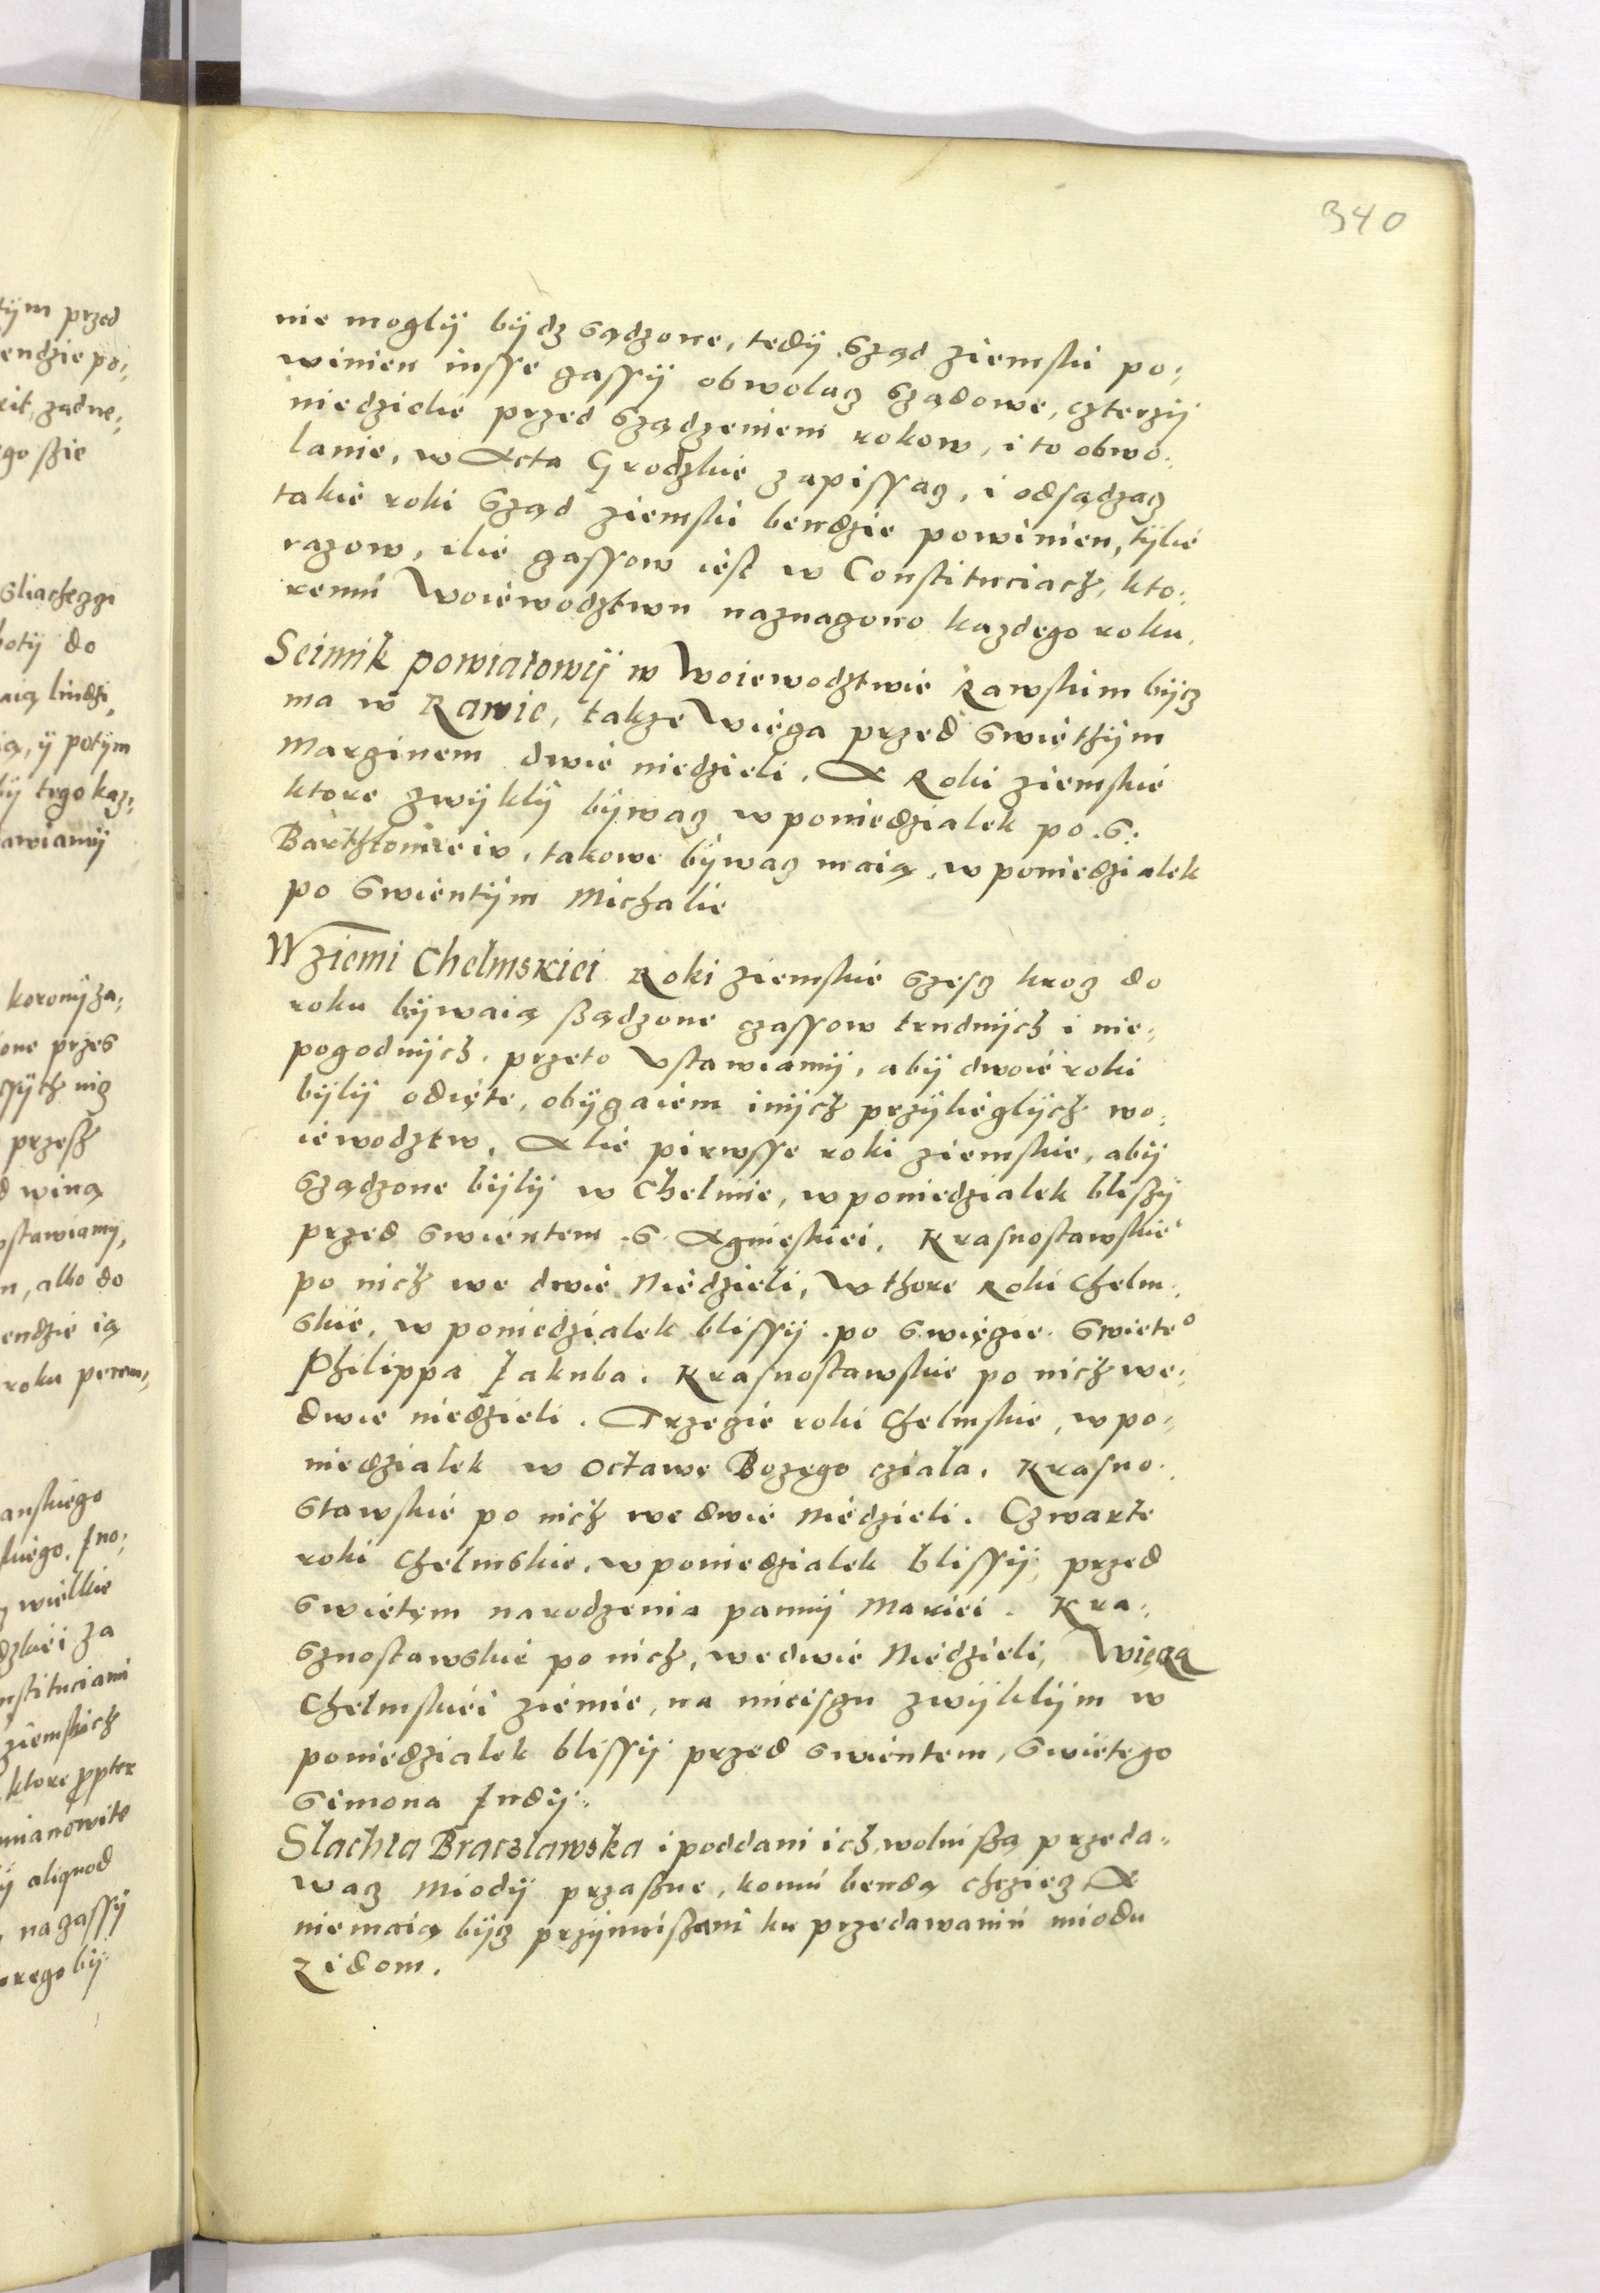 340
nie moglÿ bÿdz sądzone, tedÿ sząd ziemski po:
winien insse zassÿ obwolaz sządowe, czterzÿ
niedzielie przed sządzeniem rokow, i to obwo:
lanie, w Acta Grodzkie zapissaz, i odsądzaz
takie roki sząd ziemski bendzie powinien, tÿlie
razow, ilie zassow iest w Constituciach, kto:
remu Woiewodztwu naznazono kazdego roku.
Seimik powiatowÿ w Woiewodztwie Rawskim bÿcz
ma w Rawie, takze Wieza przed Swiethÿm
Marzinem dwie niedzieli. A Roki ziemskie
ktore zwÿklÿ bÿwaz w poniedzialek po .S.
Barthlomieiu, takowe bÿwaz maią, w poniedzialek
po Swientÿm Michalie
W ziemi Chelmskiei Roki ziemskie szesz kroz do
roku bÿwaią ßądzone czassow trudnÿch i nie:
pogodnÿch. przeto Vstawiamÿ, abÿ dwoie roki
bÿlÿ odięte, obÿzaiem inÿch przÿlieglÿch wo:
iewodztw. Alie pirwsse roki ziemskie, abÿ
sządzone bÿlÿ w Chelmie, w poniedzialek blißÿ
przed Swientem .S. Agnieskiei. Krasnostawskie
po nich we dwie Niedzieli, Wthore Roki Chelm:
skie, w poniedzialek blissÿ .po Swięzie. Swieteo
Philippa Jakuba. Krasnostawskie po nich we:
dwie niedzieli. Trzezie roki Chelmskie, w po:
niedzialek w Octawe Bozego cziala. Krasno:
stawskie po nich we dwie Niedzieli. Czwarte
roki Chelmskie, w poniedzialek blissÿ, przed
Swietem narodzenia pannÿ Mariei. Kra:
sznostawskie po nich, we dwie Niedzieli, Wieza
Chelmskiei ziemie, na mieiszu zwÿklÿm w
poniedzialek blissÿ przed Swientem, Swietego
Simona Judÿ.
Slachta Braczlawska i poddani ich, wolni ßą przeda:
waz Miodÿ przaßne, komu bendą chziez A
nie maią bÿcz przÿmußani ku przedawaniu miodu
Zidom.
tÿm przed
endzie po:
zadne:
go ßie
sliacheczzi
do
ÿ potÿm
bÿ tego kaz:
awiamÿ
koronÿ za:
one przes
niz
przesz
wina
vstawiamÿ,
albo do
endzie ią
roku perem:
anskiego
skiego. Jno:
wielkie
dzkiei za
nstituciami
ziemskich
ktore ppter
mianowite
aliquod
na zassÿ
orego bÿ